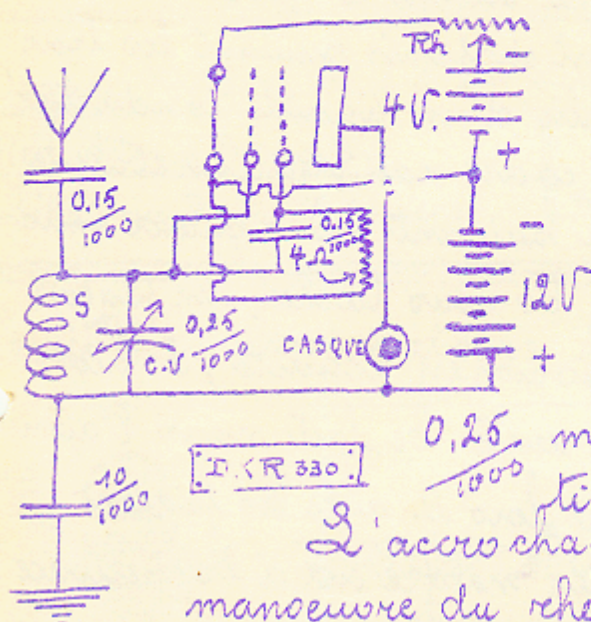 Rh
-
4V.
+
0.15
1000
0.15
1000
4Ω
-
12V
+
S
0,25
1000
C.V
CASQUE
10
1000
D.KR 330
0,25 m
1000
ti
L'accrocha
manoeuvre du rhé